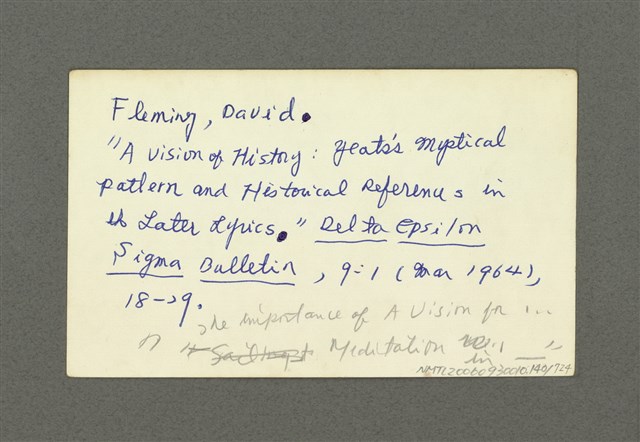 Fleming, David.
"A Vision of History: Yeats's Mystical
Pattern and Historical References in
Later Lyrics." Delta Epsilon
Sigma Bulletin, 9:1 (Mar 1964),
18-29.
The importance of A Vision for ...
" Meditation in — "
NMTL20060930010.140/724